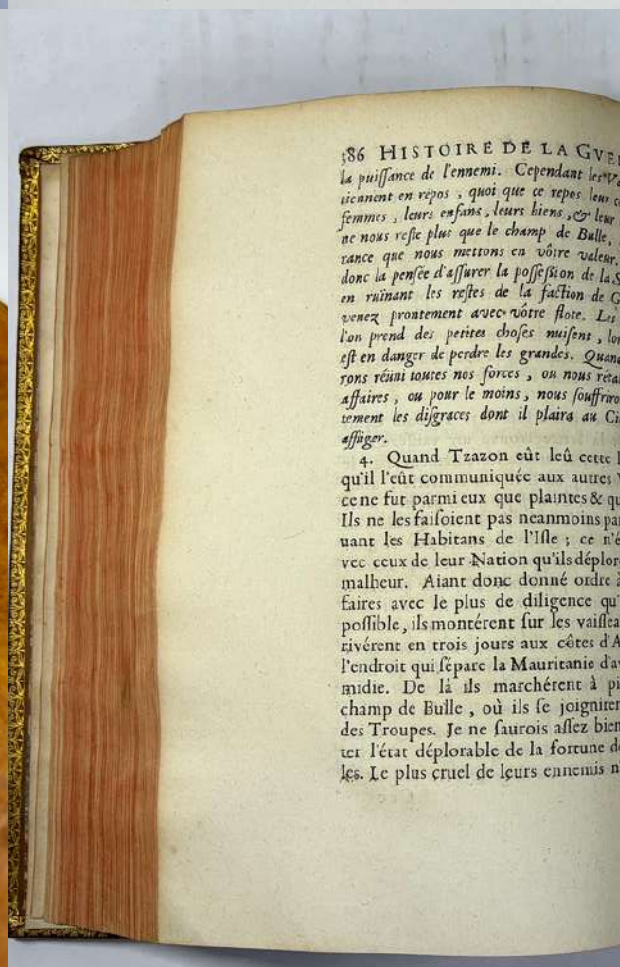 386 HISTOIRE DE LA GVE
la puiſſance de l'ennemi. Cependant les Va
tiennent en repos , quoi que ce repos leur c
femmes , leurs enfans, leurs biens , & leur
ne nous reſte plus que le champ de Bulle,
rance que nous mettons en vôtre valeur.
donc la penſée d'aſſurer la poſſeſsion de la S
en ruïnant les reſtes de la faction de G
venez prontement avec vôtre flote. Les
l'on prend des petites choſes nuiſent , lor
eſt en danger de perdre les grandes. Quand
rons réüni toutes nos forces , ou nous rétab
affaires , ou pour le moins , nous ſouffriro
tement les diſgraces dont il plaira au Ci
affliger.
4. Quand Tzazon eût leû cette l
qu'il l'eût communiquée aux autres V
ce ne fut parmi eux que plaintes & qu
Ils ne les faiſoient pas neanmoins par
uant les Habitans de l'Iſle ; ce n'é
vec ceux de leur Nation qu'ils déplor
malheur. Aiant donc donné ordre à
faires avec le plus de diligence qu'
poſſible, ils montérent ſur les vaiſſea
rivérent en trois jours aux côtes d'A
l'endroit qui ſépare la Mauritanie d'av
midie. De là ils marchérent à pi
champ de Bulle , où ils ſe joignirer
des Troupes. Je ne ſaurois aſſez bien
ter l'état déplorable de la fortune de
les. Le plus cruel de leurs ennemis n